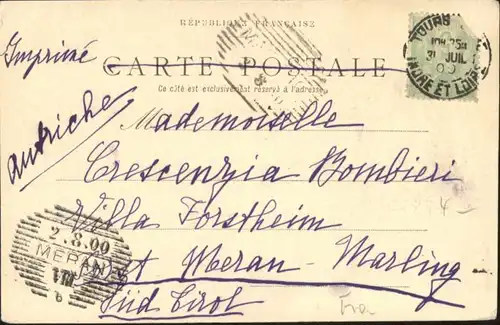 RÉPUBLIQUE FRANÇAISE
Imprimé
CARTE POSTALE
Ce côté est exclusivement réservé à l'adresse
TOURS
31 JUIL
00
INDRE ET LOIRE
Autriche
Mademoiselle
Crescenzia Bombieri
Villa Forstheim
Meran - Marling
Süd Tirol
2.8.00
MERAN